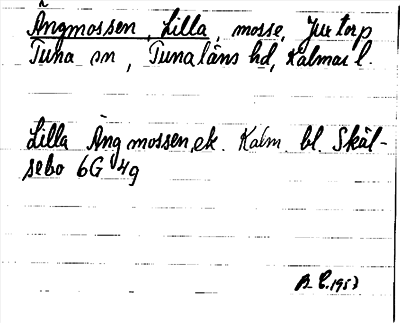 Ängmossen, Lilla, mosse, Jutorp
Tuna sn, Tunaläns hd, Kalmar l.
Lilla Ängmossen, ek. Kalm. bl. Skäl-
sebo 6G 4g
1953